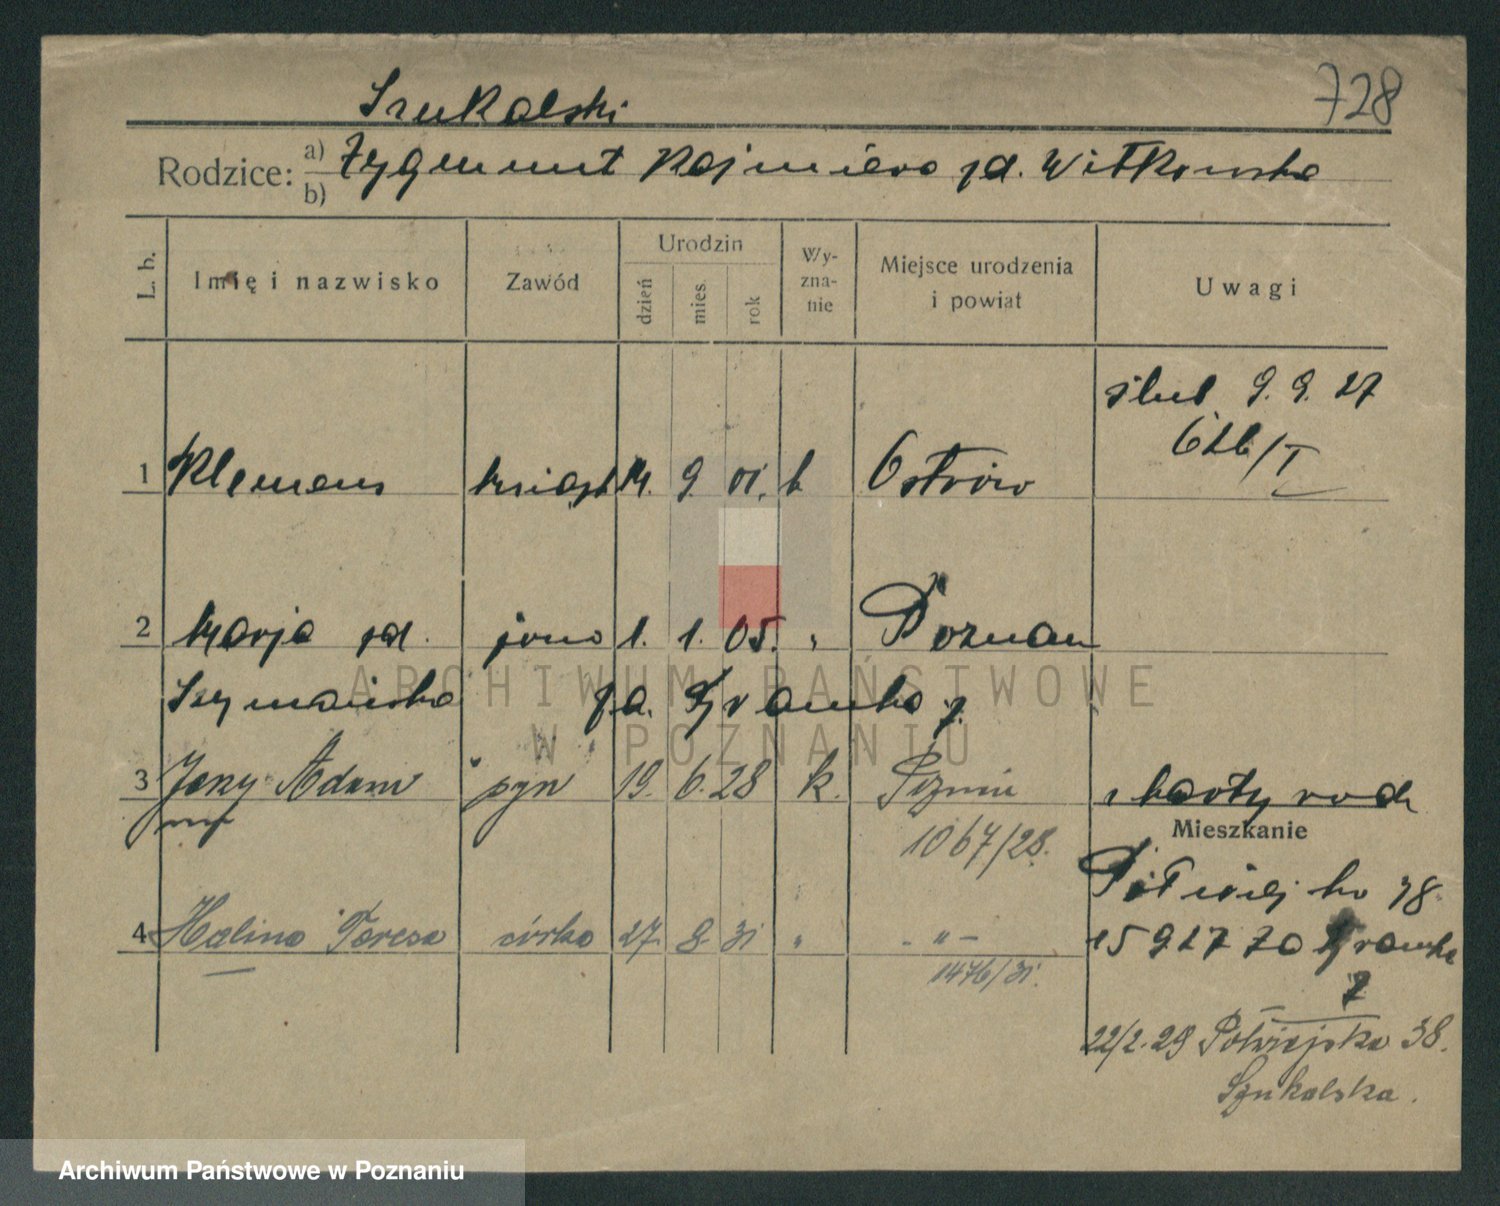 728
Szukalski
Rodzice: a) Zygmunt Kazmiera zd. Witkowska
b)
L. b.
Imię i nazwisko
Zawód
Urodzin
dzień
mies.
rok
Wy-
zna-
nie
Miejsce urodzenia
i powiat
Uwagi
ślub 9. 9. 27
626/I
1 Klemens 14. 9. 01. k Ostrów
2 Marja zd. żona 1. 1. 05. " Poznań
Szymańska
3 Jerzy Adam syn 19. 6. 28 k.
1067/28.
z karty rodz
Mieszkanie
Półwiejska 38
4 Halina Teresa córka 27. 8. 31 " - " -
1476/31.
15 9 27
7
22/2. 29 Półwiejska 38.
Szukalska.
ARCHIWUM PAŃSTWOWE
W POZNANIU
Archiwum Państwowe w Poznaniu